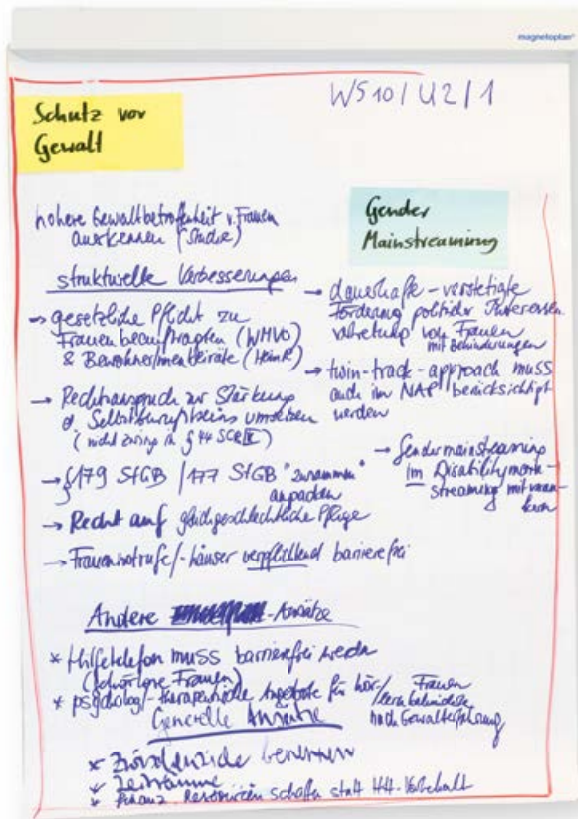 magnetoplan
WS10/U2/1
Schutz vor
Gewalt
höhere Gewaltbetroffenheit v. Frauen
anerkennen (Studie)
strukturelle Verbesserungen
→ gesetzliche Pflicht zu
Frauenbeauftragten (WMVO)
& Bewohner/innenbeiräte (HeimR.)
→ Rechtsanspruch zur Stärkung
d. Selbstbewußtseins umsetzen
(nicht § 44 SGB IX)
→ §179 StGB / 177 StGB "zusammen"
anpacken
→ Recht auf gleichgeschlechtliche Pflege
→ Frauennotrufe/-häuser verpflichtend barrierefrei
Gender
Mainstreaming
→ dauerhafte - verstetigte
Förderung politischer Interessen
vertretung von Frauen
mit Behinderungen
→ twin-track-approach muss
auch im NAP berücksichtigt
werden
→ Gendermainstreaming
im Disabilitymain-
streaming mit veran-
kern
Andere -Ansätze
* Hilfetelefon muss barrierefrei werden
(gehörlose Frauen)
* psycholog/-therapeutische Angebote für hör-/lernbehinderte Frauen
nach Gewalterfahrung
Generelle Ansätze
* benennen
* Zeiträume
* Finanz. Ressourcen schaffen statt HH-Vorbehalt